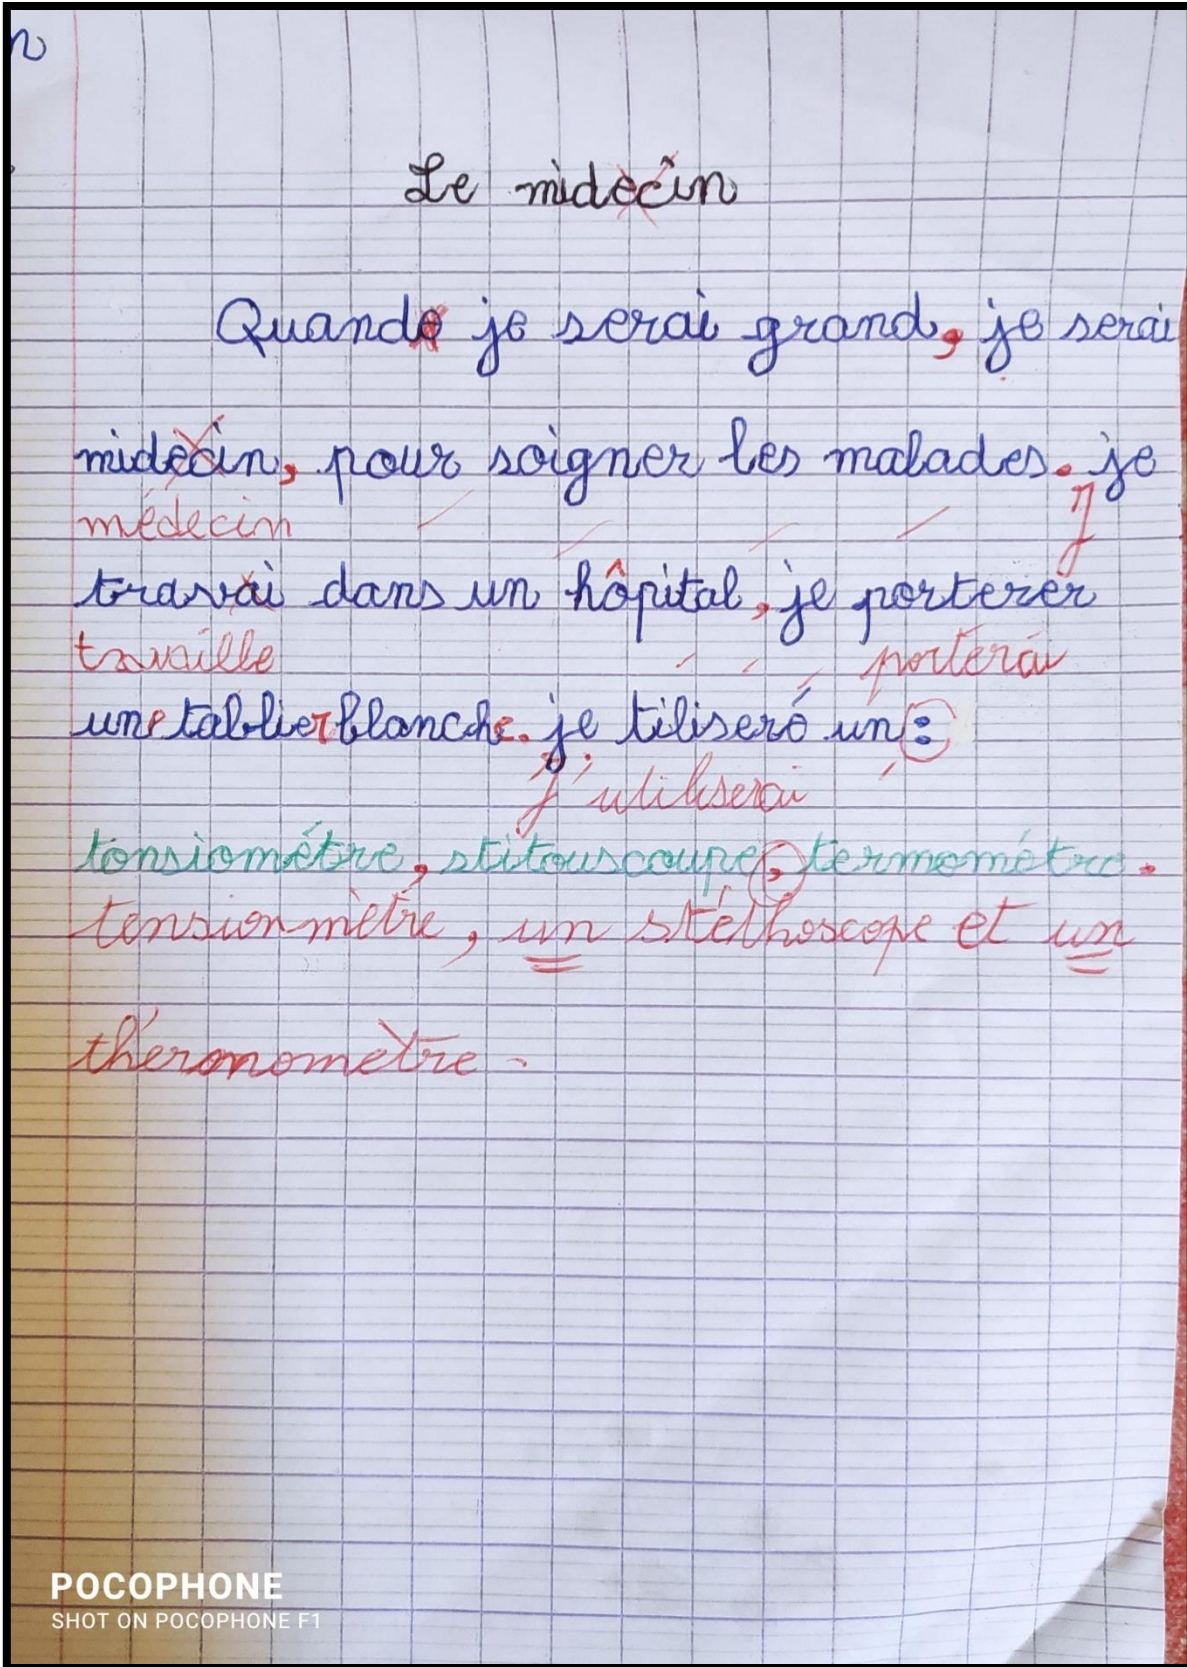 n
Le midècin
Quande je serai grand, je serai
midècin, pour soigner les malades. je
médecin J
travai dans un hôpital, je porterer
travaille porterai
une tablier blanche. je tiliseré un :
j'utiliserai
tonsiométre, stitouscoupe, termométre.
tensionmètre, un stéthoscope et un
thérmomètre.
POCOPHONE
SHOT ON POCOPHONE F1